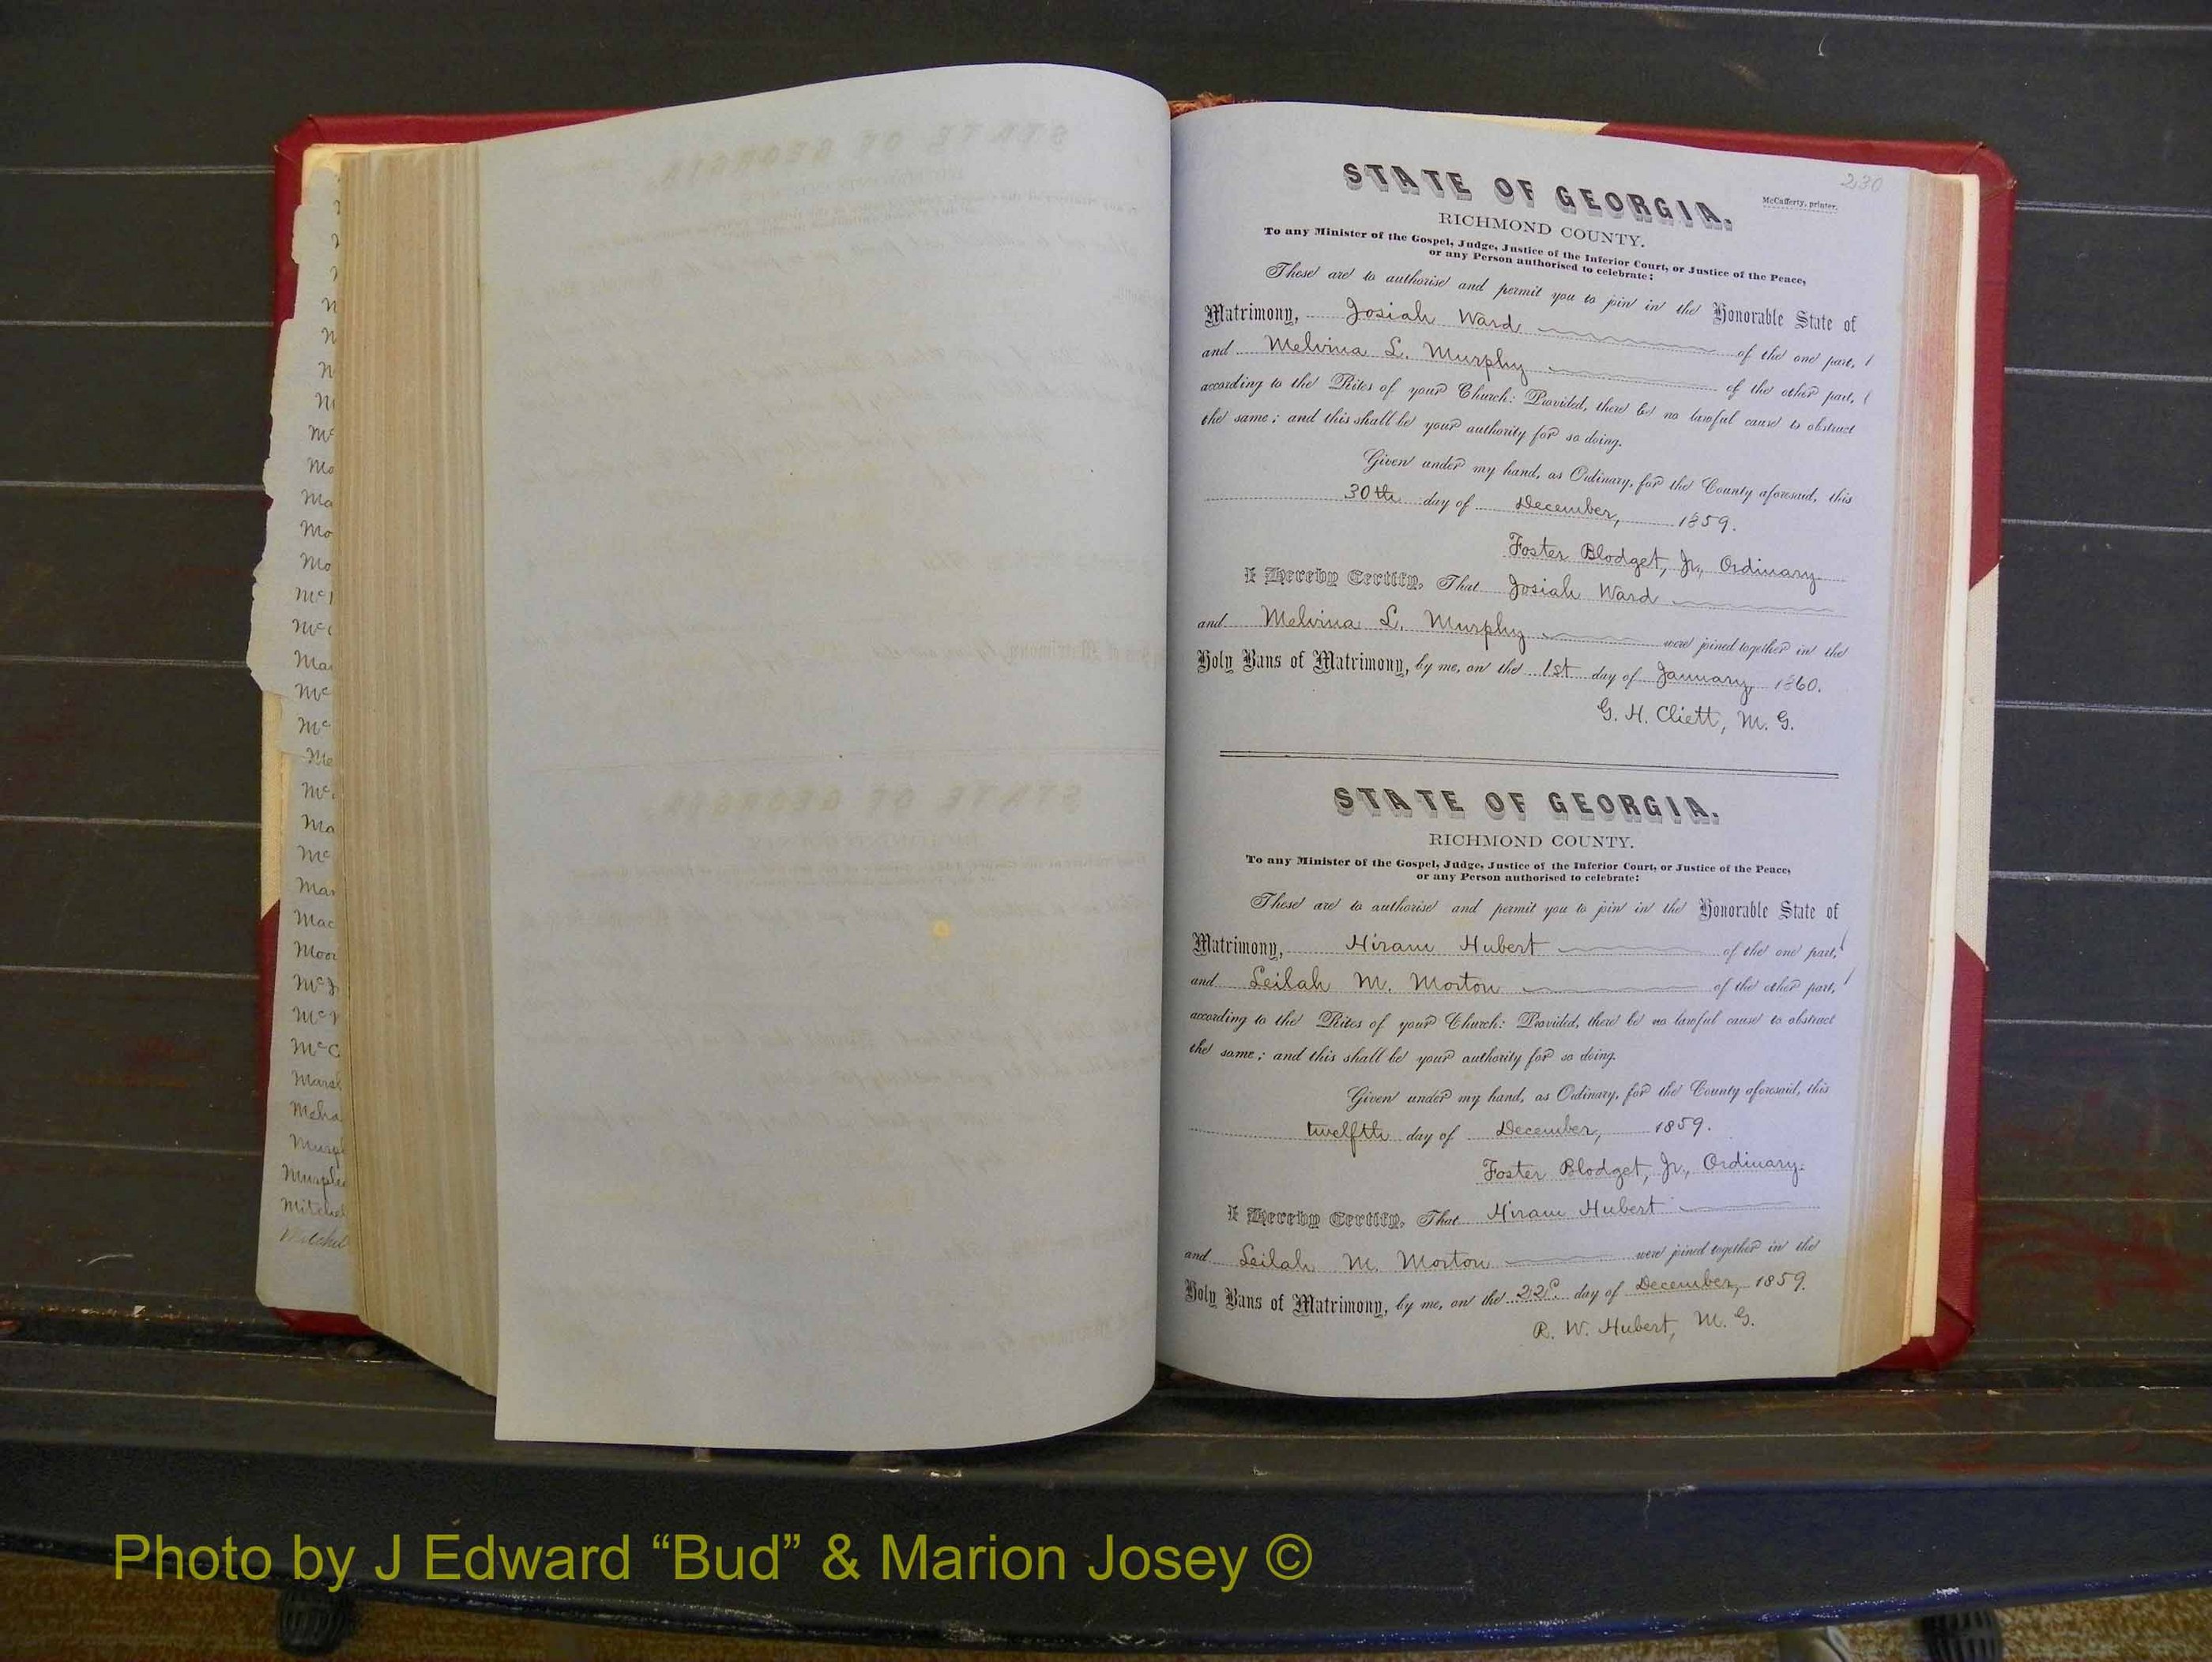 230
STATE OF GEORGIA.
McCafferty, printer.
RICHMOND COUNTY.
To any Minister of the Gospel, Judge, Justice of the Inferior Court, or Justice of the Peace,
or any Person authorised to celebrate:
These are to authorise and permit you to join in the Honorable State of
Matrimony, Josiah Ward of the one part,
and Melvina L. Murphy of the other part,
according to the Rites of your Church: Provided, there be no lawful cause to obstruct
the same; and this shall be your authority for so doing.
Given under my hand, as Ordinary, for the County aforesaid, this
30th day of December, 1859.
Foster Blodget, Jr., Ordinary
I Hereby Certify, That Josiah Ward
and Melvina L. Murphy were joined together in the
Holy Bans of Matrimony, by me, on the 1st day of January, 1860.
G. H. Cliett, M. G.
STATE OF GEORGIA.
RICHMOND COUNTY.
To any Minister of the Gospel, Judge, Justice of the Inferior Court, or Justice of the Peace,
or any Person authorised to celebrate:
These are to authorise and permit you to join in the Honorable State of
Matrimony, Hiram Hubert of the one part,
and Leilah M. Morton of the other part,
according to the Rites of your Church: Provided, there be no lawful cause to obstruct
the same; and this shall be your authority for so doing.
Given under my hand, as Ordinary, for the County aforesaid, this
twelfth day of December, 1859.
Foster Blodget, Jr., Ordinary.
I Hereby Certify, That Hiram Hubert
and Leilah M. Morton were joined together in the
Holy Bans of Matrimony, by me, on the 22d. day of December, 1859.
R. W. Hubert, M. G.
Photo by J Edward “Bud” & Marion Josey ©